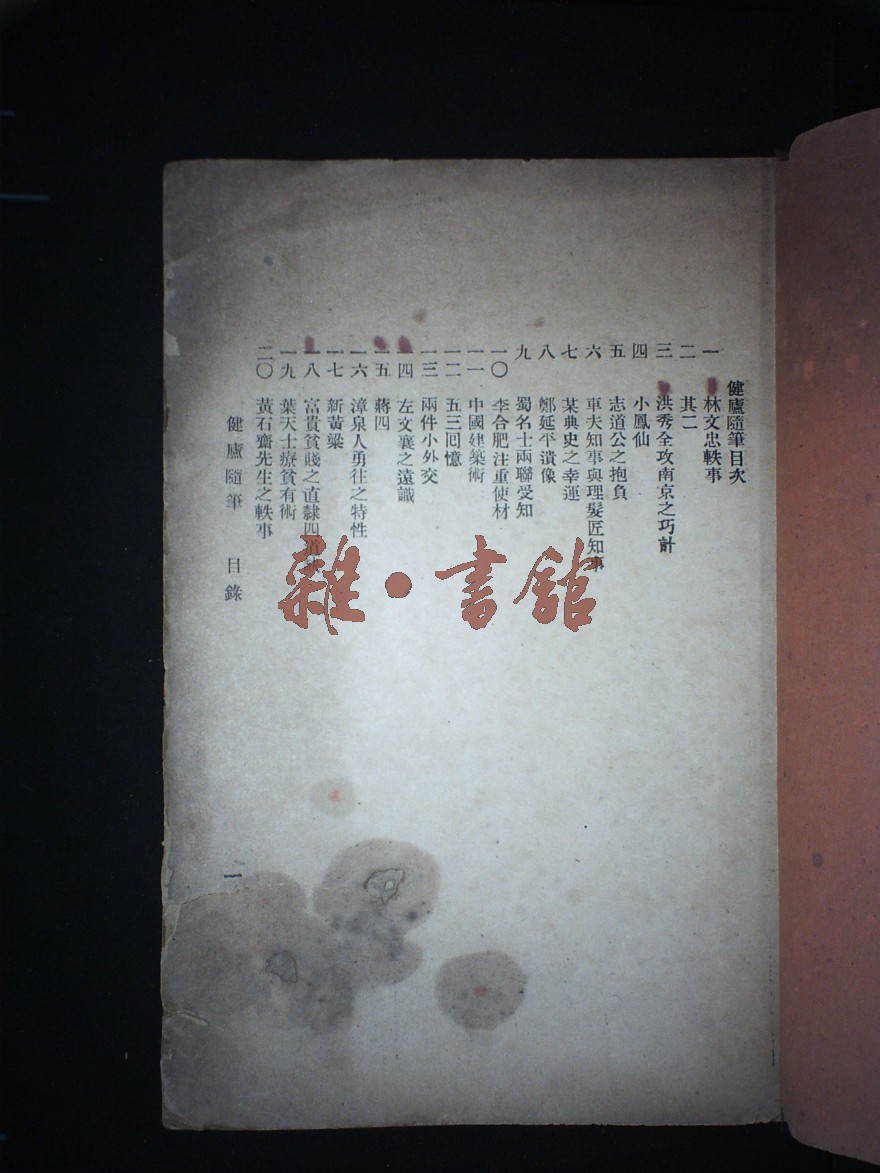 健廬隨筆目次
一 林文忠軼事
二 其二
三 洪秀全攻南京之巧計
四 小鳳仙
五 志道公之抱負
六 車夫知事與理髮匠知事
七 某典史之幸運
八 鄭延平潰像
九 蜀名士兩聯受知
一〇 李合肥注重使材
一一 中國建築術
一二 五三回憶
一三 兩件小外交
一四 左文襄之遠識
一五 蔣四
一六 漳泉人勇往之特性
一七 新黃粱
一八 富貴貧賤之直隸四道
一九 葉天士療貧有術
二〇 黃石齋先生之軼事
健廬隨筆 目錄
一
雜·書館